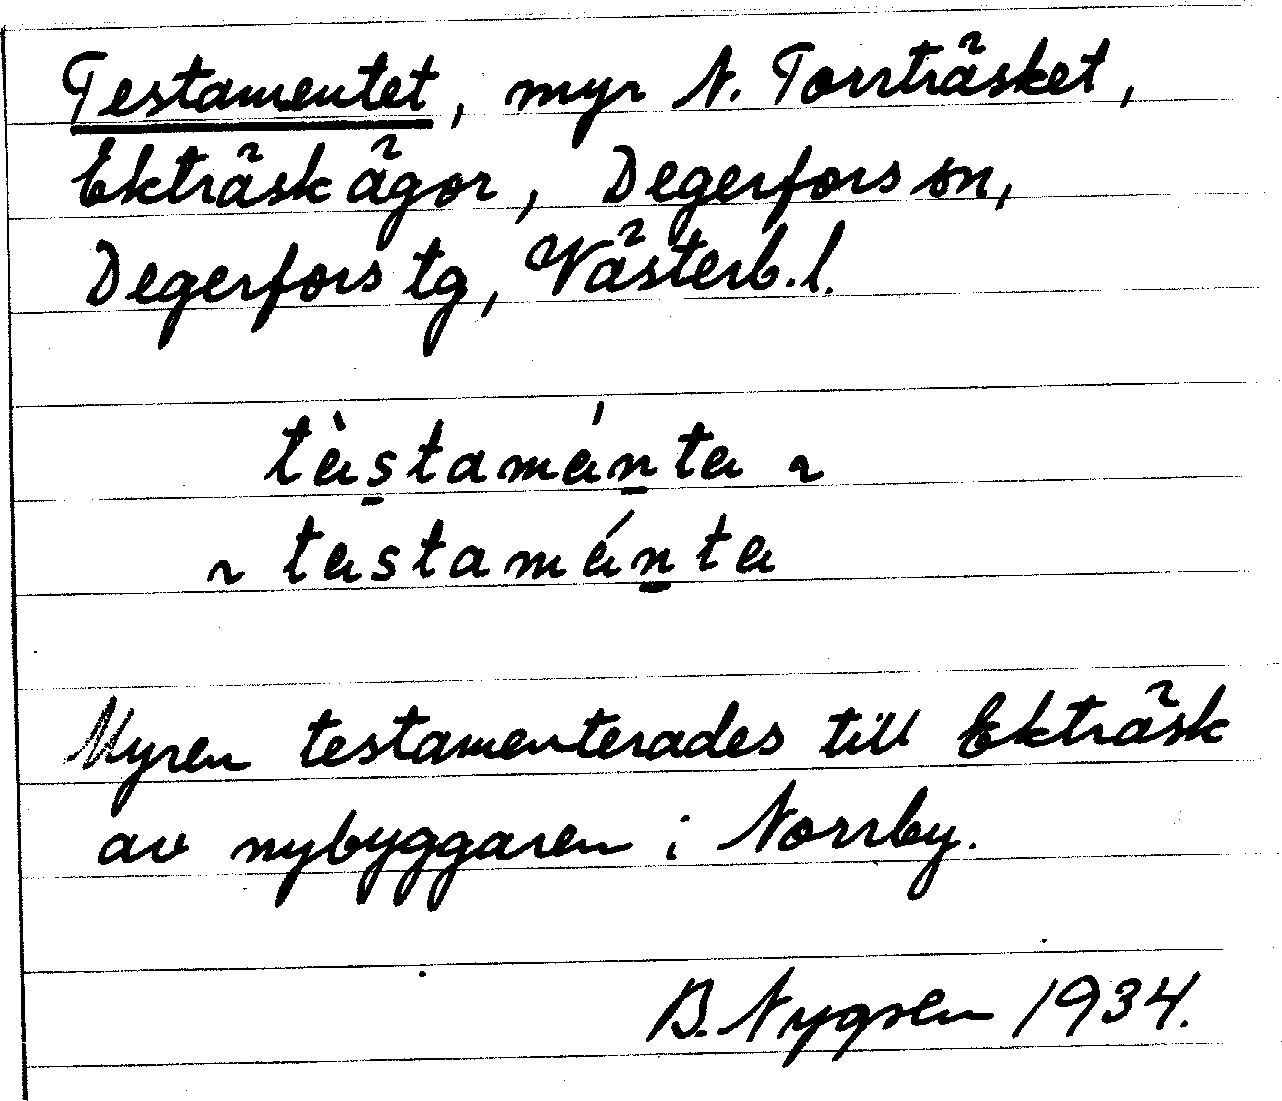 Testamentet, myr N. Torrträsket,
Ekträsk ägor, Degerfors sn,
Degerfors tg, Västerb. l.
tàstamánta ~
~ tastamánta
Myren testamenterades till Ekträsk
av nybyggaren i Norrby.
B. 1934.